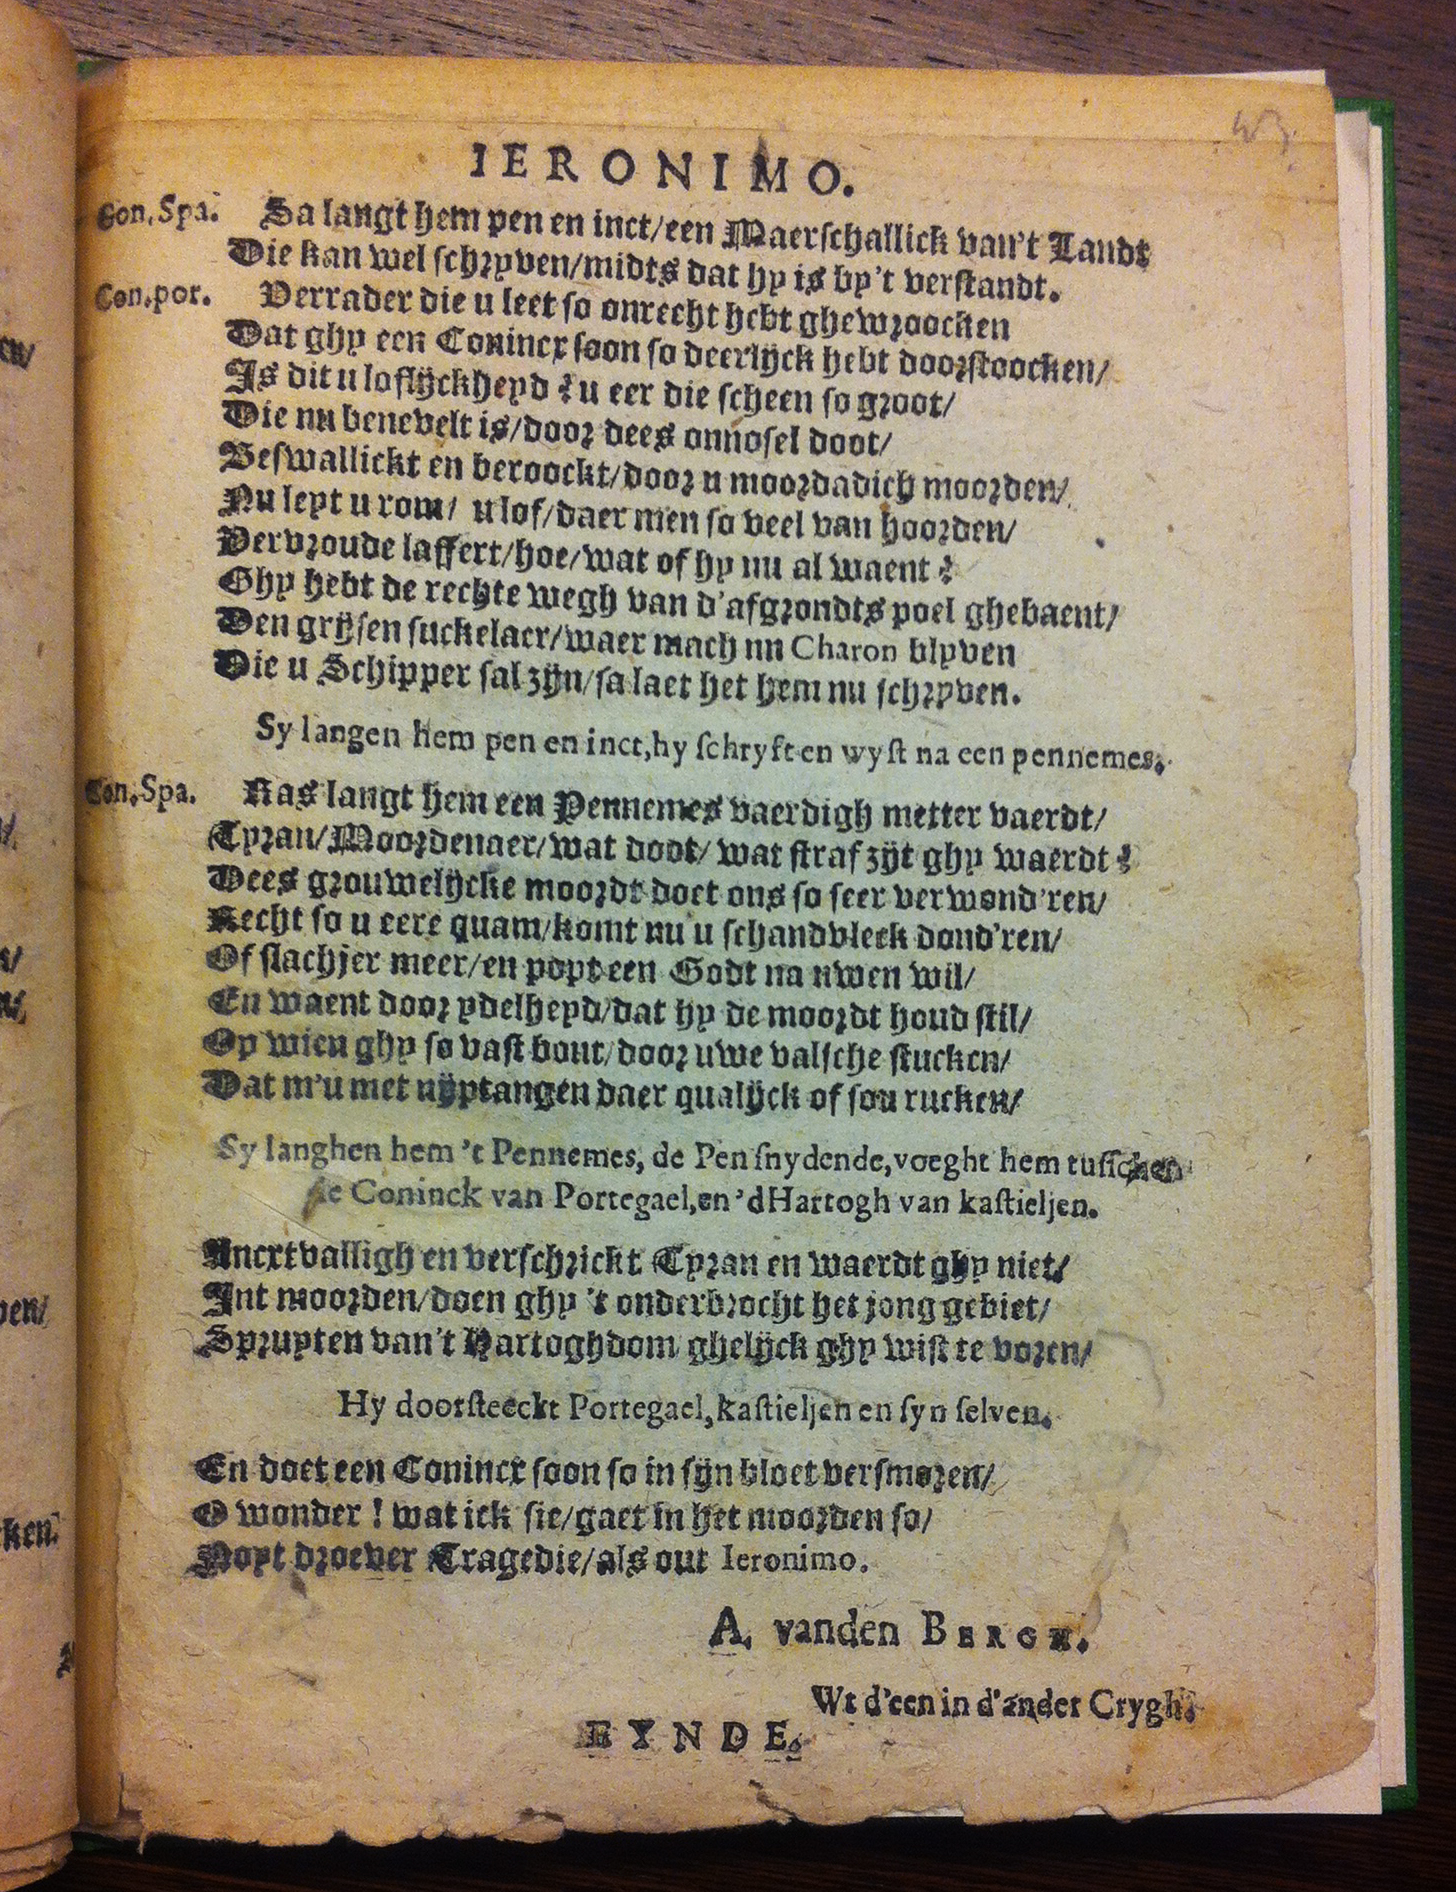 43.
IERONIMO.
Con. Spa. Sa langt hem pen en inct/een Maerschallick van't Landt
Die kan wel schryven/midts dat hy is by't verstandt.
Con.por. Verrader die u leet so onrecht hebt ghewroocken
Dat ghy een Conincx soon so deerlijck hebt doorstoocken/
Is dit u loflijckheyd? u eer die scheen so groot/
Die nu benevelt is/door dees onnosel doot/
Beswallickt en beroockt/door u moordadich moorden/
Nu leyt u rom/ u lof/daer men so veel van hoorden/
Vervroude laffert/hoe/wat of hy nu al waent?
Ghy hebt de rechte wegh van d'afgrondts poel ghebaent/
Den grijsen suckelaer/waer mach nu Charon blyven
Die u Schipper sal zijn/sa laet het hem nu schryven.
Sy langen hem pen en inct,hy schryft en wyst na een pennemes.
Con.Spa. Ras langt hem een Pennemes vaerdigh metter vaerdt/
Tyran/Moordenaer/wat doot/ wat straf zijt ghy waerdt?
Dees grouwelijcke moordt doet ons so seer verwond'ren/
Recht so u eere quam/komt nu u schandvleck dond'ren/
Of slachjer meer/en poyt een Godt na uwen wil/
En waent door ydelheyd/dat hy de moordt houd stil/
Op wien ghy so vast bout/door uwe valsche stucken/
Dat m'u met nijptangen daer qualijck of sou rucken/
Sy langhen hem 't Pennemes, de Pen snydende,voeght hem tusschen
de Coninck van Portegael,en 'd Hartogh van kastieljen.
Ancxtvalligh en verschrickt Tyran en waerdt ghy niet/
Int moorden/doen ghy 't onderbrocht het jong gebiet/
Spruyten van't Hartoghdom ghelijck ghy wist te voren/
Hy doorsteeckt Portegael,kastieljen en syn selven.
En doet een Conincx soon so in sijn bloet versmoren/
O wonder ! wat ick sie/gaet in het moorden so/
Noyt droever Tragedie/als out Ieronimo.
A. vanden BERGH.
Wt d'een in d'ander Crygh.
EYNDE.